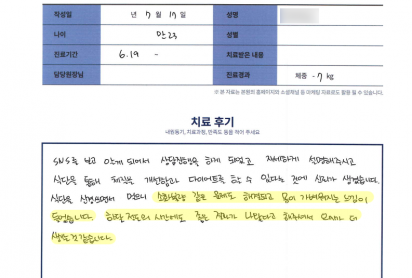 작성일 년 7월 17일 성명
나이 만 23 성별
진료기간 6.19 - 치료받은 내용
담당원장님 진료결과 체중 -7kg
※ 본 자료는 본원의 홈페이지와 소셜채널 등 마케팅 자료로도 활용 될 수 있습니다.
치료 후기
내원동기, 치료과정, 만족도 등을 적어 주세요
SNS를 보고 알게 되어서 상담신청을 하게 되었고 자세하게 설명해주시고
식단을 통해 체질을 개선함과 다이어트를 할 수 있다는 것에 신뢰가 생겼습니다.
식단을 신경쓰면서 먹으니 소화불량 같은 문제도 해결되고 몸이 가벼워지는 느낌이
들었습니다. 한달 정도의 시간에도 좋은 결과가 나타나고 해주셔서 더
생기는 것 같습니다.